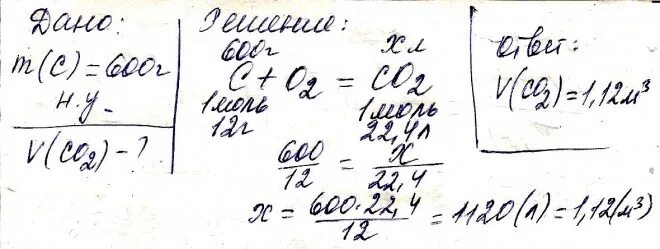 Дано:
m(C)=600г
н.у.
V(CO₂)-?
Решение:
600г хл
C+O₂=CO₂
1моль 1моль
12г 22,4л
600/12 = х/22,4
х = 600·22,4/12 = 1120(л)=1,12(м³)
Ответ:
V(CO₂)=1,12м³